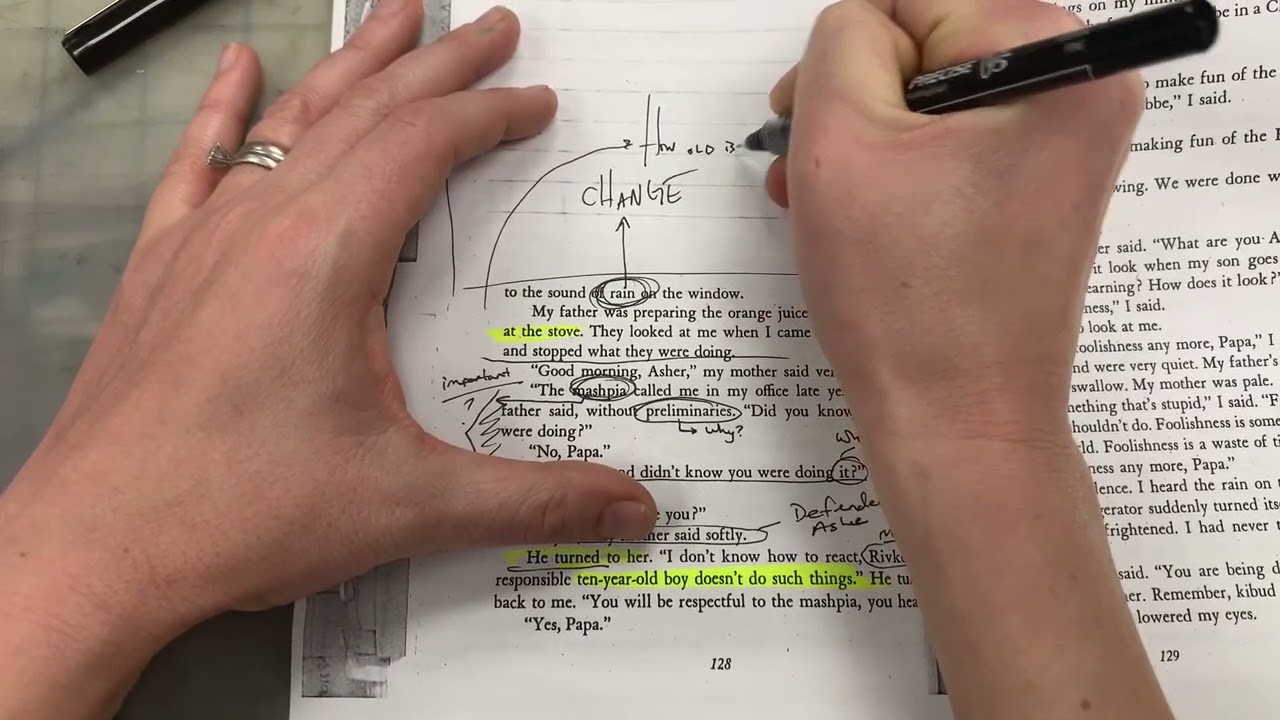 PRECISE V5
How old is
CHANGE
to the sound of rain on the window.
My father was preparing the orange juice
at the stove. They looked at me when I came
and stopped what they were doing.
important
"Good morning, Asher," my mother said ver
"The mashpia called me in my office late ye
father said, without preliminaries. "Did you know
why?
were doing?"
"No, Papa."
nd didn't know you were doing it?"
you?"
Defende
Asher
her said softly.
He turned to her. "I don't know how to react, Rivk
responsible ten-year-old boy doesn't do such things." He tu
back to me. "You will be respectful to the mashpia, you hea
"Yes, Papa."
128
be in a C
o make fun of the
bbe," I said.
making fun of the
wing. We were done w
er said. "What are you A
it look when my son goes
earning? How does it look?"
ness," I said.
look at me.
oolishness any more, Papa," I
nd were very quiet. My father's
swallow. My mother was pale.
nething that's stupid," I said. "F
houldn't do. Foolishness is some
ld. Foolishness is a waste of ti
ness any more, Papa."
lence. I heard the rain on
gerator suddenly turned itse
frightened. I had never
said. "You are being d
er. Remember, kibud
lowered my eyes.
129